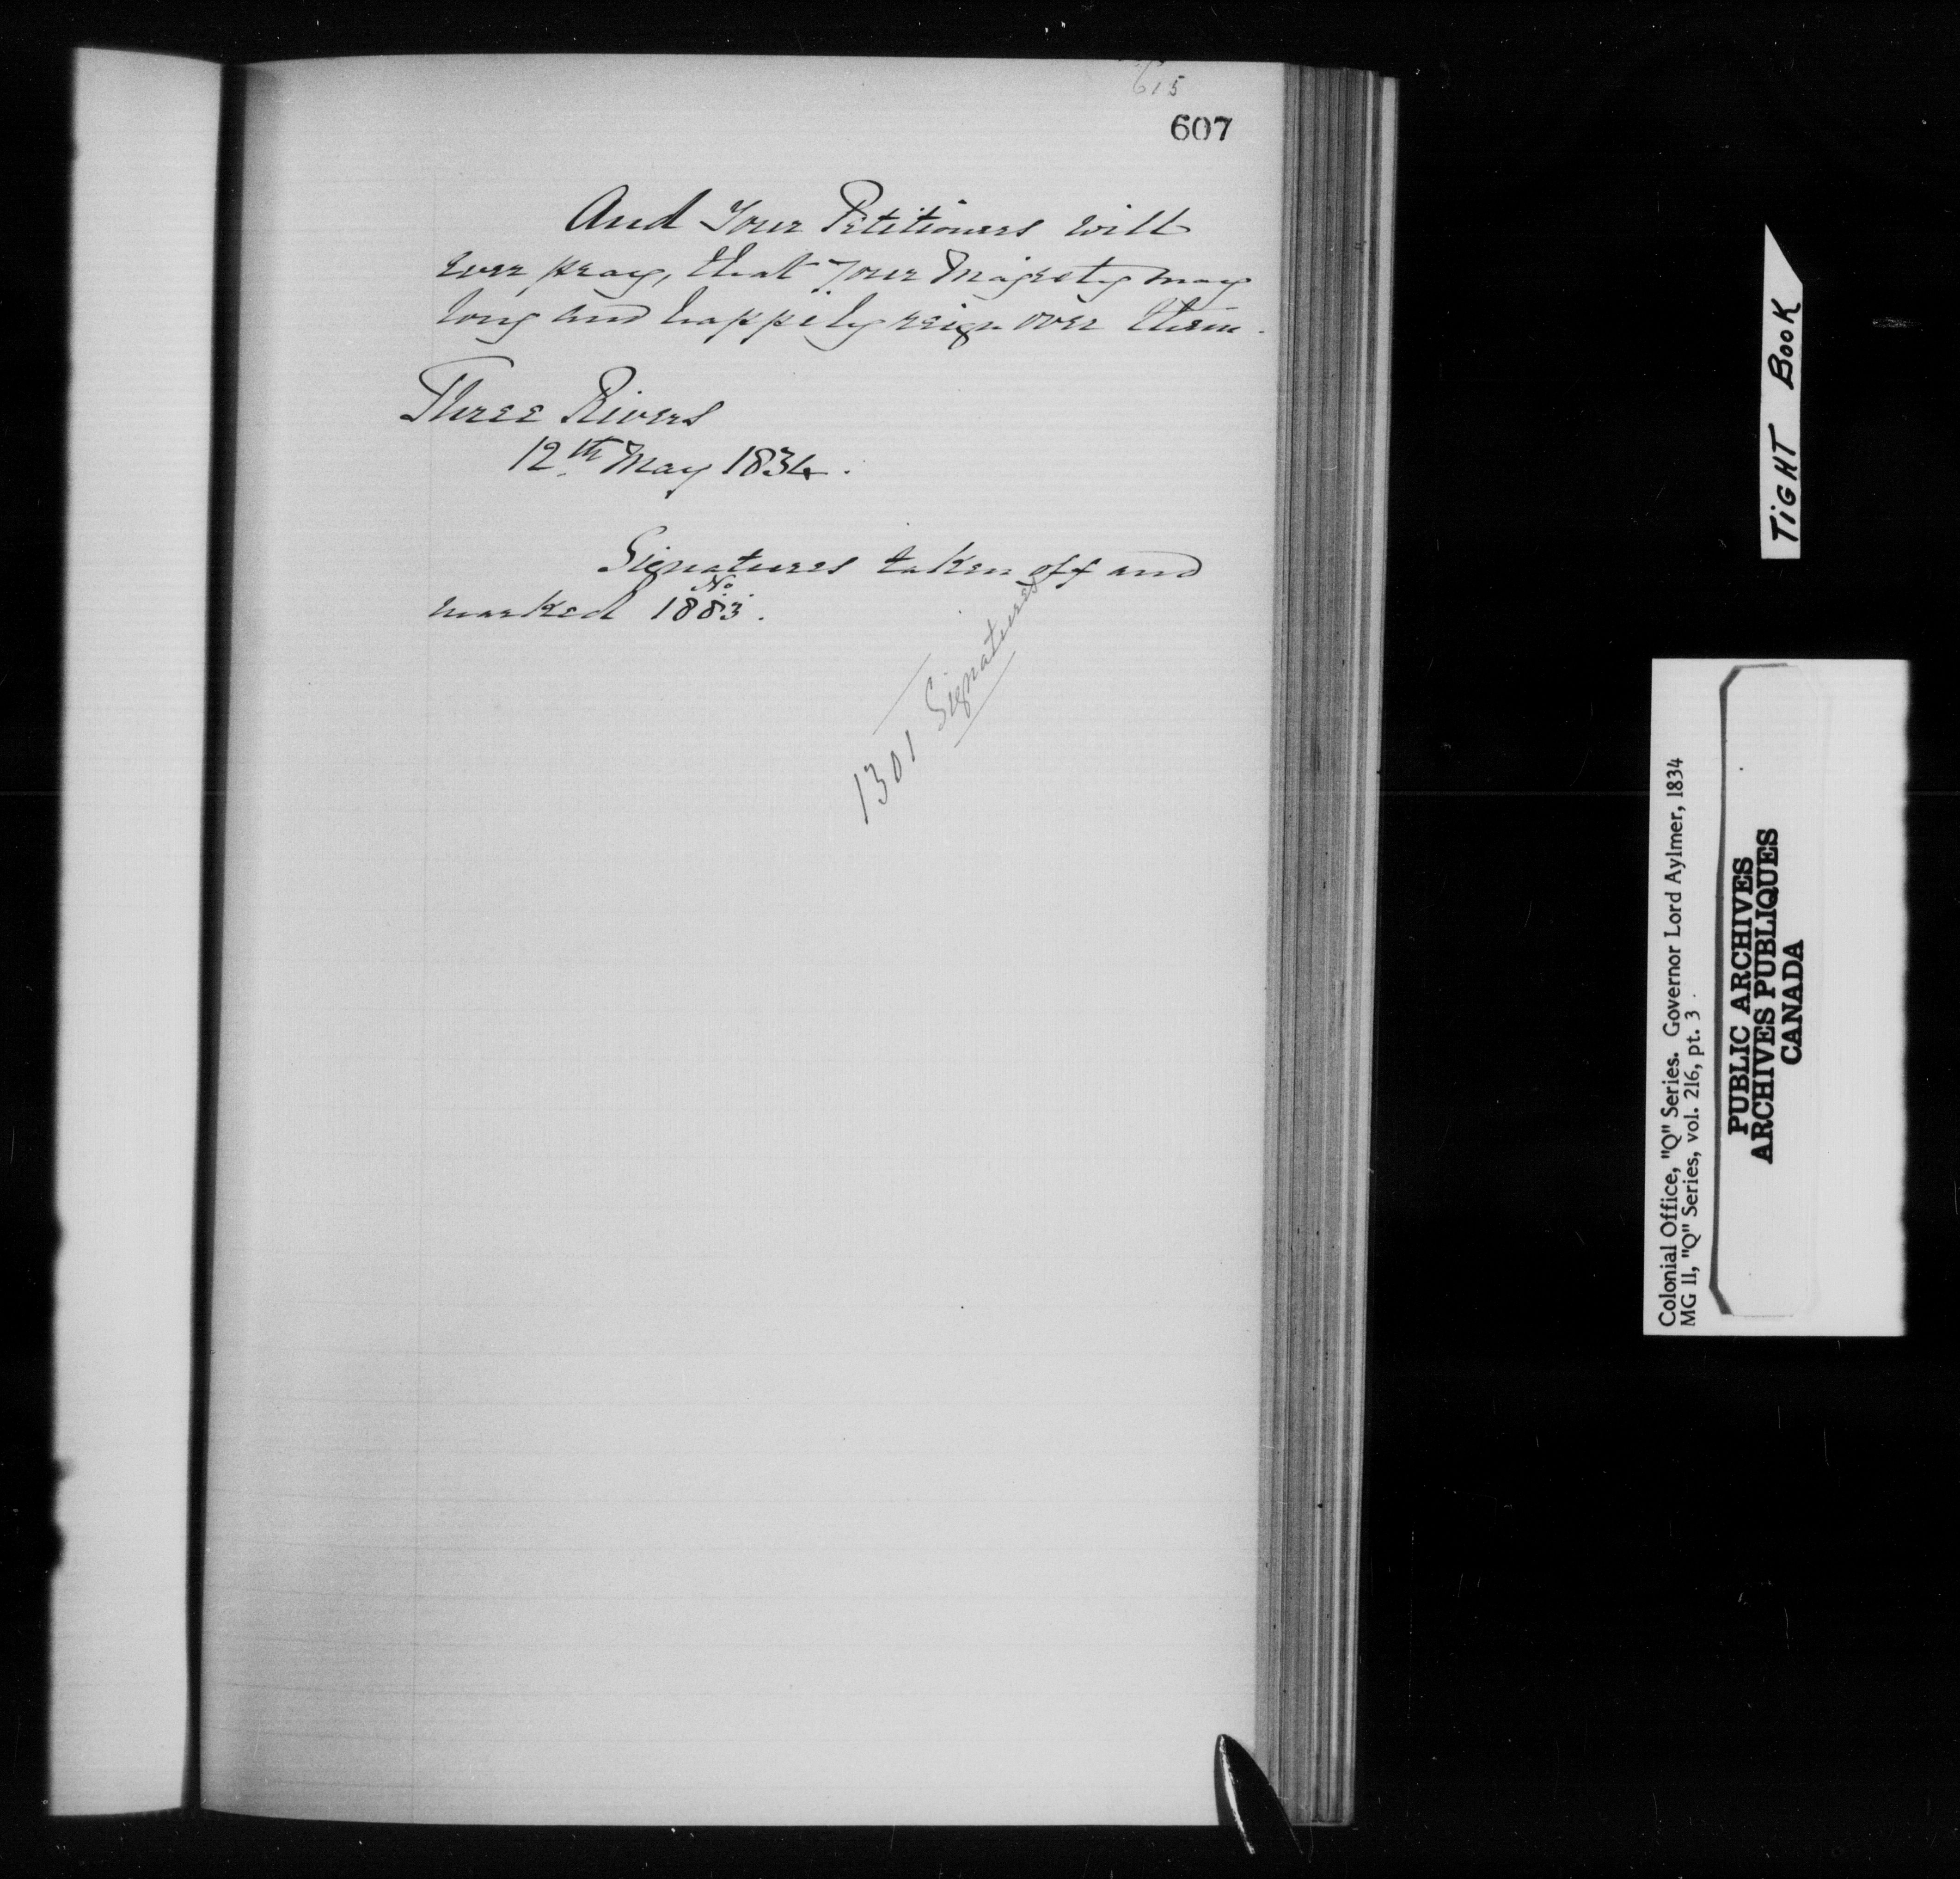 615
607
And Your Petitioners will
ever pray, that Your Majesty may
long and happily reign over them.
Three Rivers
12th May 1834.
Signatures taken off and
No
marked 1883.
1301 Signatures
TIGHT BOOK
Colonial Office, "Q" Series. Governor Lord Aylmer, 1834
MG 11, "Q" Series, vol. 216, pt. 3.
PUBLIC ARCHIVES
ARCHIVES PUBLIQUES
CANADA